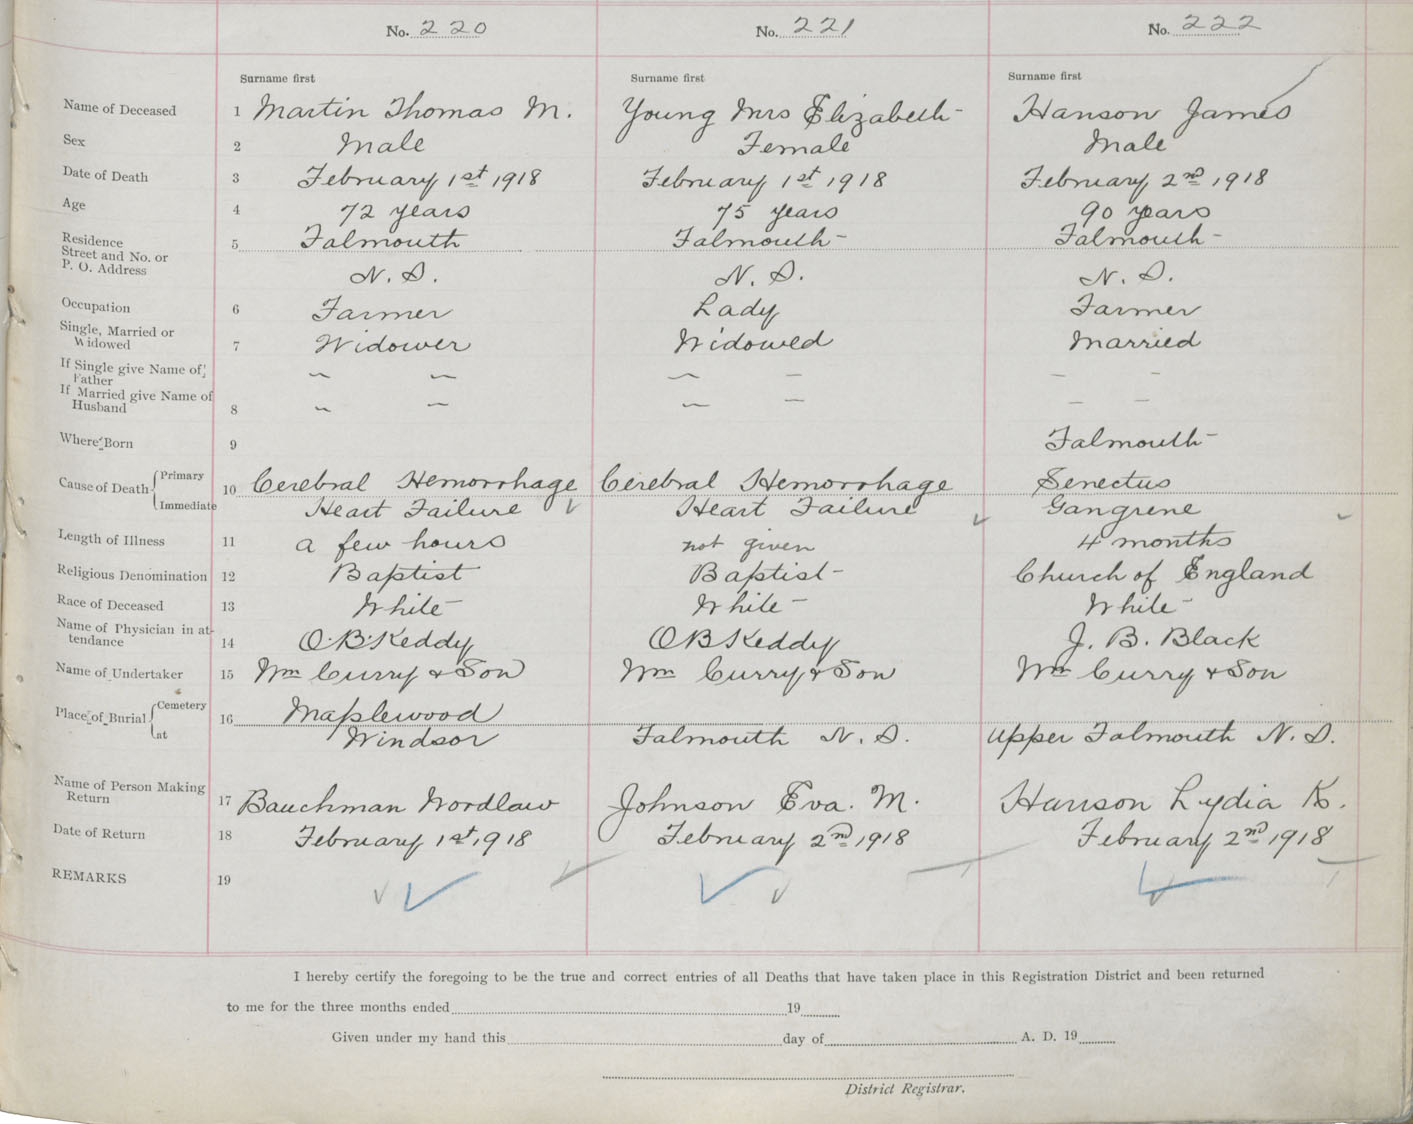 No. 220 No. 221 No. 222
Surname first Surname first Surname first
Name of Deceased 1 Martin Thomas M. Young Mrs Elizabeth Hanson James
Sex 2 Male Female Male
Date of Death 3 February 1st 1918 February 1st 1918 February 2nd 1918
Age 4 72 years 75 years 90 years
Residence 5 Falmouth Falmouth Falmouth
Street and No. or
P. O. Address N. S. N. S. N. S.
Occupation 6 Farmer Lady Farmer
Single, Married or
Widowed 7 Widower Widowed Married
If Single give Name of
Father
If Married give Name of
Husband 8
Where Born 9 Falmouth
Cause of Death Primary 10 Cerebral Hemorrhage Cerebral Hemorrhage Senectus
Immediate Heart Failure Heart Failure Gangrene
Length of Illness 11 a few hours not given 4 months
Religious Denomination 12 Baptist Baptist Church of England
Race of Deceased 13 White White White
Name of Physician in at-
tendance 14 O.B. Keddy O B Keddy J. B. Black
Name of Undertaker 15 Wm Curry & Son Wm Curry & Son Wm Curry & Son
Place of Burial Cemetery 16 Maplewood
at Windsor Falmouth N. S. Upper Falmouth N. S.
Name of Person Making
Return 17 Bauchman Wordlaw Johnson Eva. M. Hanson Lydia K.
Date of Return 18 February 1st 1918 February 2nd 1918 February 2nd 1918
REMARKS 19
I hereby certify the foregoing to be the true and correct entries of all Deaths that have taken place in this Registration District and been returned
to me for the three months ended 19
Given under my hand this day of A. D. 19
District Registrar.